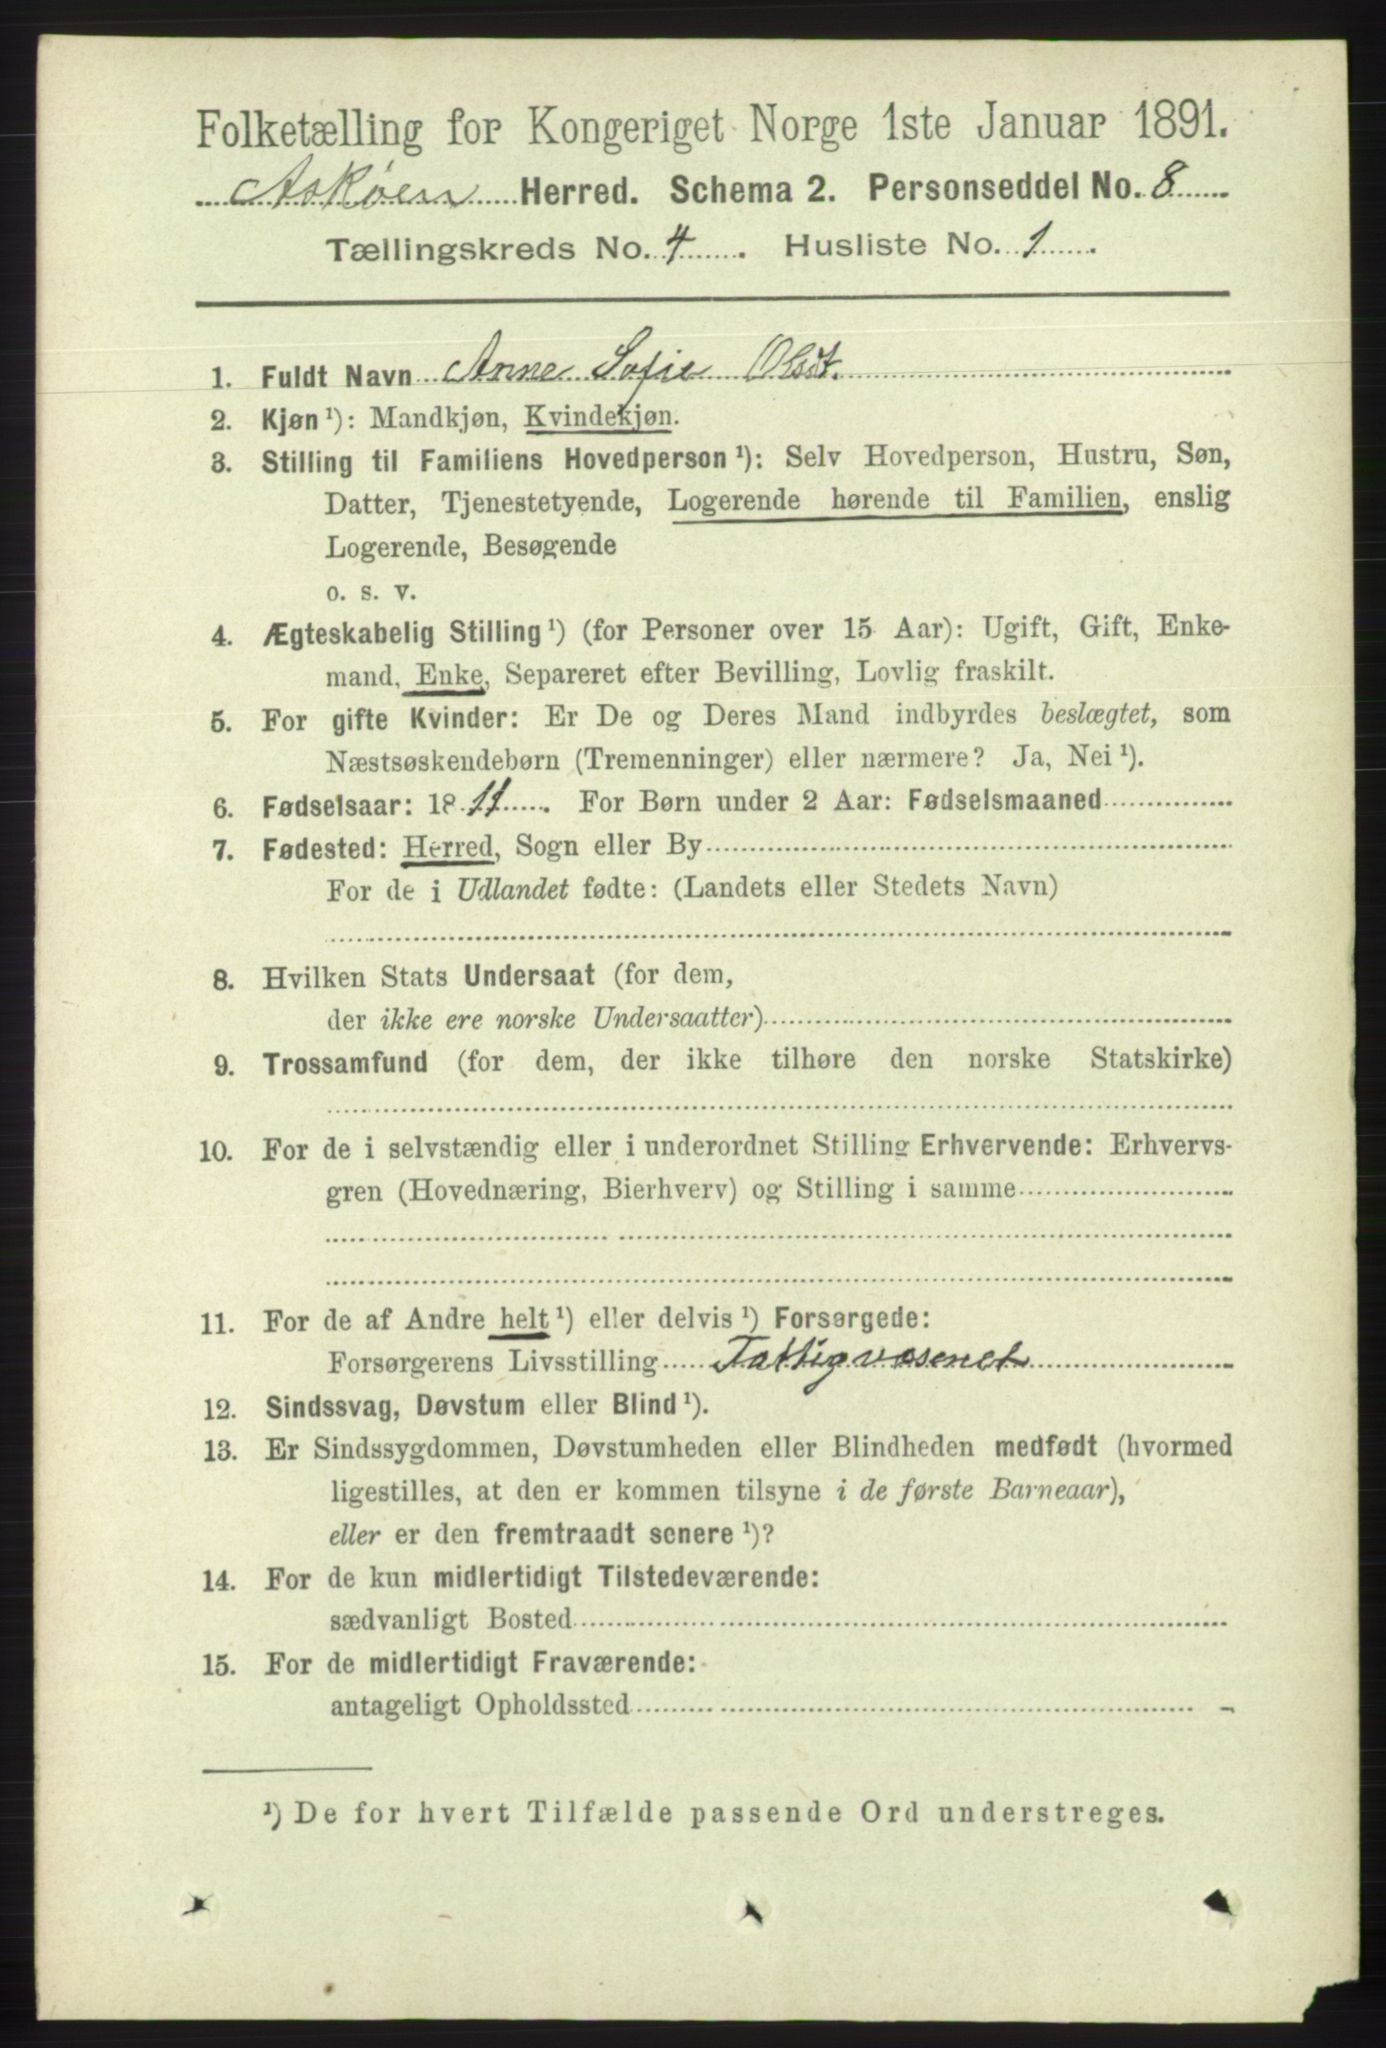 Folketælling for Kongeriget Norge 1ste Januar 1891.
Askøen Herred. Schema 2. Personseddel No. 8
Tællingskreds No. 4. Husliste No. 1.
1. Fuldt Navn Anne Sofie Olsdt.
2. Kjøn¹): Mandkjøn, Kvindekjøn.
3. Stilling til Familiens Hovedperson¹): Selv Hovedperson, Hustru, Søn,
Datter, Tjenestetyende, Logerende hørende til Familien, enslig
Logerende, Besøgende
o. s. v.
4. Ægteskabelig Stilling¹) (for Personer over 15 Aar): Ugift, Gift, Enke-
mand, Enke, Separeret efter Bevilling, Lovlig fraskilt.
5. For gifte Kvinder: Er De og Deres Mand indbyrdes beslægtet, som
Næstsøskendebørn (Tremenninger) eller nærmere? Ja, Nei¹).
6. Fødselsaar: 1811. For Børn under 2 Aar: Fødselsmaaned
7. Fødested: Herred, Sogn eller By
For de i Udlandet fødte: (Landets eller Stedets Navn)
8. Hvilken Stats Undersaat (for dem,
der ikke ere norske Undersaatter)
9. Trossamfund (for dem, der ikke tilhøre den norske Statskirke)
10. For de i selvstændig eller i underordnet Stilling Erhvervende: Erhvervs-
gren (Hovednæring, Bierhverv) og Stilling i samme
11. For de af Andre helt¹) eller delvis¹) Forsørgede:
Forsørgerens Livsstilling Fattigvæsenet
12. Sindssvag, Døvstum eller Blind¹).
13. Er Sindssygdommen, Døvstumheden eller Blindheden medfødt (hvormed
ligestilles, at den er kommen tilsyne i de første Barneaar),
eller er den fremtraadt senere¹)?
14. For de kun midlertidigt Tilstedeværende:
sædvanligt Bosted
15. For de midlertidigt Fraværende:
antageligt Opholdssted
¹) De for hvert Tilfælde passende Ord understreges.